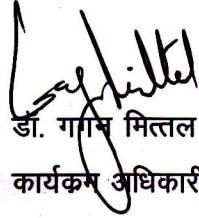 डा. गगन मित्तल
कार्यक्रम अधिकारी